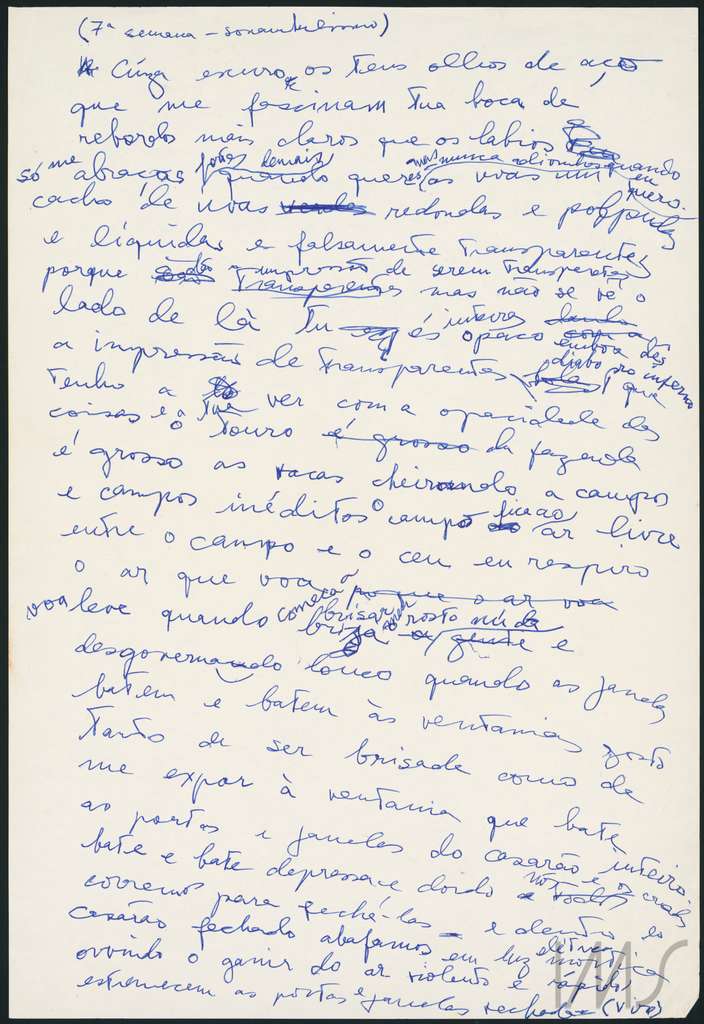 (7ª semana – sonambulismo)
Cinza escuro os teus olhos de aço
que me fascinam tua boca de
rebordos mais claros que os labios
só me abraças quando queres mas nunca quando eu quero.
cacho de uvas verdes redondas e polpudas
e líquidas e falsamente transparentes
porque dão a impressão de serem transparentes
transparentes mas não se vê o
lado de lá Tu és inteiro opaco embora dês
a impressão de transparentes diabo pro inferno que
tenho a ver com a opacidade das
coisas e a tua o touro é grosso da fazenda
é grosso as vacas cheirando a campos
e campos inéditos o campo ao ar livre
entre o campo e o ceu eu respiro
o ar que voa o porque o ar voa
voa leve quando começa brisar em rosto
brisa e
desgovernado louco quando as janelas
batem e batem às ventanias gosto
tanto de ser brisada como de
me expor à ventania que bate
as portas e janelas do casarão inteiro
bate e bate depressa e doido nós e os criados
corremos para fechá-las – e dentro do
casarão fechado abafamos em luz elétrica mortiça
ouvindo o ganir do ar violento e rápido
estremecem as portas e janelas fechadas (vivo)
IMS